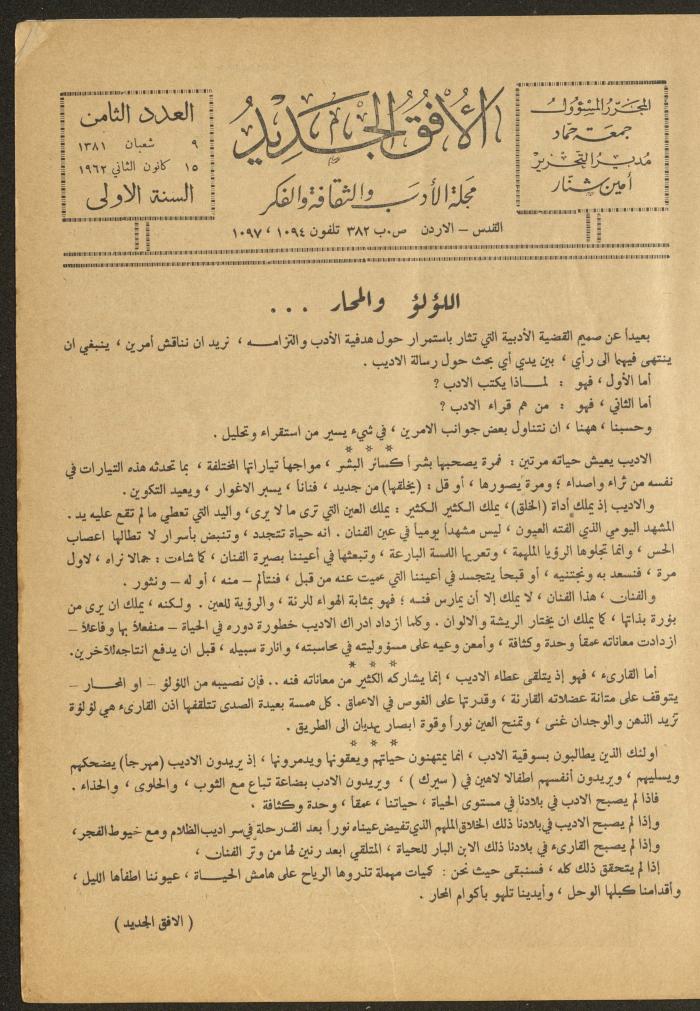 المحرر المسؤول
جمعة حمّاد
مدير التحرير
أمين شنّار
الأفق الجديد
مجلة الأدب والثقافة والفكر
القدس - الاردن ص.ب ٣٨٢ تلفون ١٠٩٤ ، ١٠٩٧
العدد الثامن
٩ شعبان ١٣٨١
١٥ كانون الثاني ١٩٦٢
السنة الاولى
اللؤلؤ والمحار ...
بعيداً عن صميم القضية الأدبية التي تثار باستمرار حول هدفية الأدب والتزامه ، نريد ان نناقش أمرين ، ينبغي ان
ينتهى فيهما الى رأي ، بين يدي أي بحث حول رسالة الاديب .
أما الأول ، فهو : لماذا يكتب الادب ؟
أما الثاني ، فهو : من هم قراء الادب ؟
وحسبنا ، ههنا ، ان نتناول بعض جوانب الامرين ، في شيء يسير من استقراء وتحليل .
* * *
الاديب يعيش حياته مرتين : فمرة يصحبها بشراً كسائر البشر ، مواجهاً تياراتها المختلفة ، بما تحدثه هذه التيارات في
نفسه من ثراء واصداء ؛ ومرة يصورها ، أو قل : (يخلقها) من جديد ، فناناً ، يسبر الاغوار ، ويعيد التكوين .
والاديب إذ يملك أداة (الخلق) ، يملك الكثير الكثير : يملك العين التي ترى ما لا يرى ، واليد التي تعطي ما لم تقع عليه يد .
المشهد اليومي الذي ألفته العيون ، ليس مشهداً يومياً في عين الفنان . انه حياة تتجدد ، وتنبض بأسرار لا تطالها اعصاب
الحس ، وانما تجلوها الرؤيا الملهمة ، وتعريها اللمسة البارعة ، وتبعثها في أعيننا بصيرة الفنان ، كما شاءت : جمالا نراه ، لاول
مرة ، فنسعد به ونجتنيه ، أو قبحاً يتجسد في أعيننا التي عميت عنه من قبل ، فنتألم - منه ، أو له - ونثور .
والفنان ، هذا الفنان ، لا يملك إلا أن يمارس فنه ؛ فهو بمثابة الهواء للرئة ، والرؤية للعين . ولكنه ، يملك ان يرى من
بؤرة بذاتها ، كما يملك ان يختار الريشة والالوان . وكلما ازداد ادراك الاديب خطورة دوره في الحياة - منفعلاً بها وفاعلاً -
ازدادت معاناته عمقاً وحدة وكثافة ، وأمعن وعيه على مسؤوليته في محاسبته ، وانارة سبيله ، قبل ان يدفع انتاجه للآخرين .
* * *
أما القارىء ، فهو إذ يتلقى عطاء الاديب ، إنما يشاركه الكثير من معاناته فنه .. فإن نصيبه من اللؤلؤ - او المحار -
يتوقف على متانة عضلاته القارئة ، وقدرتها على الغوص في الاعماق . كل همسة بعيدة الصدى تتلقفها اذن القارىء هي لؤلؤة
تزيد الذهن والوجدان غنى ، وتمنح العين نوراً وقوة ابصار يهديان الى الطريق .
* * *
اولئك الذين يطالبون بسوقية الادب ، انما يمتهنون حياتهم ويعقونها ويدمرونها ، إذ يريدون الاديب (مهرجاً) يضحكهم
ويسليهم ، ويريدون أنفسهم اطفالا لاهين في ( سيرك ) ، ويريدون الادب بضاعة تباع مع الثوب ، والحلوى ، والحذاء .
فاذا لم يصبح الادب في بلادنا في مستوى الحياة ، حياتنا ، عمقاً ، وحدة وكثافة .
وإذا لم يصبح الاديب في بلادنا ذلك الخلاق الملهم الذي تفيض عيناه نوراً بعد الف رحلة في سراديب الظلام ومع خيوط الفجر ،
وإذا لم يصبح القارىء في بلادنا ذلك الابن البار للحياة ، المتلقي ابعد رنين لها من وتر الفنان ،
إذا لم يتحقق ذلك كله ، فسنبقى حيث نحن : كميات مهملة تذروها الرياح على هامش الحياة ، عيوننا اطفأها الليل ،
وأقدامنا كبلها الوحل ، وأيدينا تلهو بأكوام المحار .
( الافق الجديد )